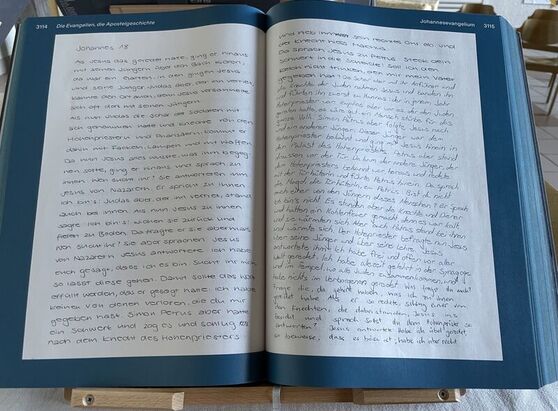 3114 Die Evangelien, die Apostelgeschichte
Johannes 18
Als Jesus das geredet hatte, ging er hinaus
mit seinen Jüngern über den Bach Kidron;
da war ein Garten, in den gingen Jesus
und seine Jünger. Judas aber, der ihn verriet,
kannte den Ort auch, denn Jesus versammelte
sich oft dort mit seinen Jüngern.
Als nun Judas die Schar der Soldaten mit
sich genommen hatte und Knechte von den
Hohenpriestern und Pharisäern, kommt er
dahin mit Fackeln, Lampen und mit Waffen.
Da nun Jesus alles wusste, was ihm begeg-
nen sollte, ging er hinaus und sprach zu
ihnen: Wen sucht ihr? Sie antworteten ihm:
Jesus von Nazareth. Er spricht zu ihnen:
Ich bin's! Judas aber, der ihn verriet, stand
auch bei ihnen. Als nun Jesus zu ihnen
sagte: Ich bin's!, wichen sie zurück und
fielen zu Boden. Da fragte er sie abermals:
Wen sucht ihr? Sie aber sprachen: Jesus
von Nazareth. Jesus antwortete: Ich habe
euch gesagt, dass ich es bin. Sucht ihr mich,
so lasst diese gehen. Damit sollte das Wort
erfüllt werden, das er gesagt hatte: Ich habe
keinen von denen verloren, die du mir
gegeben hast. Simon Petrus aber hatte
ein Schwert und zog es und schlug
nach dem Knecht des Hohenpriesters
Johannesevangelium 3115
und hieb ihm sein rechtes Ohr ab. Und
der Knecht hieß Malchus.
Da sprach Jesus zu Petrus: Steck dein
Schwert in die Scheide! Soll ich den
Kelch nicht trinken, den mir mein Vater
gegeben hat?
die Knechte der Juden nahmen Jesus und banden ihn
und führten ihn zuerst zu Hannas; der
Simon Petrus aber folgte Jesus nach
und ein anderer Jünger. Dieser Jünger war dem
Hohenpriester bekannt und ging mit Jesus hinein in
den Palast des Hohenpriesters. Petrus aber stand
draußen vor der Tür. Da kam der andere Jünger, der
dem Hohenpriester bekannt war, heraus und redete
mit der Türhüterin und führte Petrus hinein. Da sprach
die Magd, die Türhüterin, zu Petrus: Bist du nicht
auch einer von den Jüngern dieses Menschen? Er sprach:
Ich bin's nicht. Es standen aber die Knechte und Diener
und hatten ein Kohlenfeuer gemacht, denn es war kalt,
und sie wärmten sich. Aber auch Petrus stand bei ihnen
und wärmte sich. Der Hohepriester befragte nun Jesus
über seine Jünger und über seine Lehre. Jesus
antwortete ihm: Ich habe frei und offen vor aller
Welt geredet. Ich habe allezeit gelehrt in der Synagoge
und im Tempel, wo alle Juden zusammenkommen, und
habe nichts im Verborgenen geredet. Was fragst du mich?
Frage die, die gehört haben, was ich zu ihnen
geredet habe. Als er so redete, schlug einer von
den Knechten, die dabeistanden, Jesus ins
Gesicht und sprach: Sollst du dem Hohenpriester so
antworten? Jesus antwortete: Habe ich übel geredet,
so beweise, dass es böse ist; habe ich aber recht